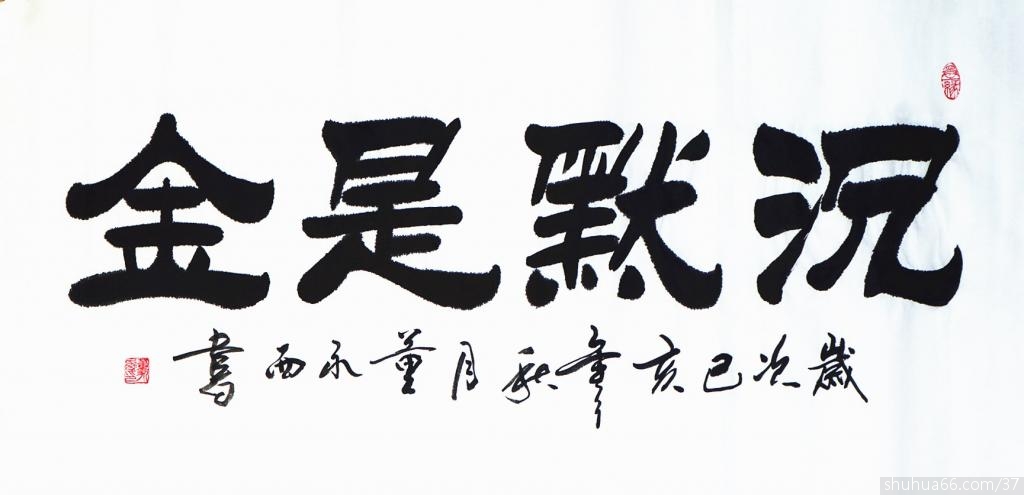 沉默是金
歲次己亥年秋月董永西書
shuhua66.com/37